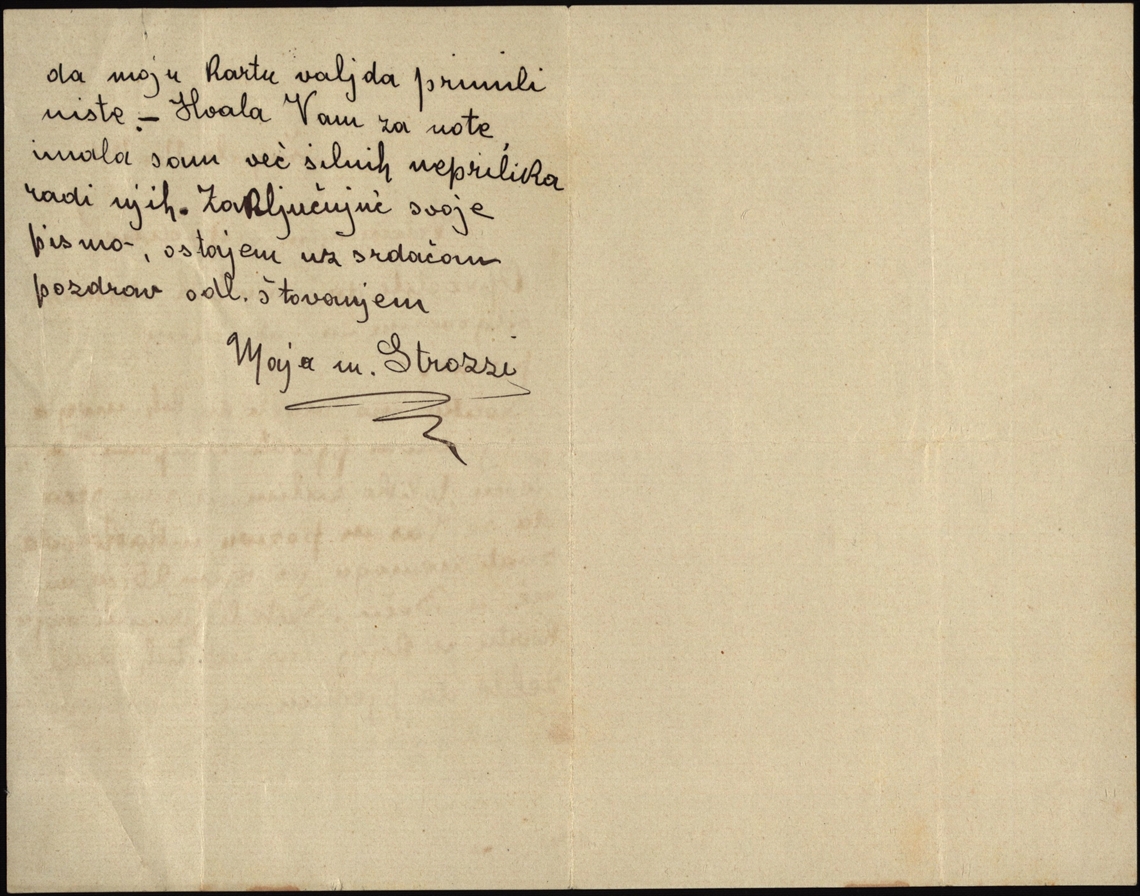 da moju kartu valjda primili
niste. – Hvala Vam za note,
imala sam već silnih neprilika
radi njih. Zaključujuć svoje
pismo, ostajem uz srdačan
pozdrav odl. štovanjem
Maja m. Strozzi